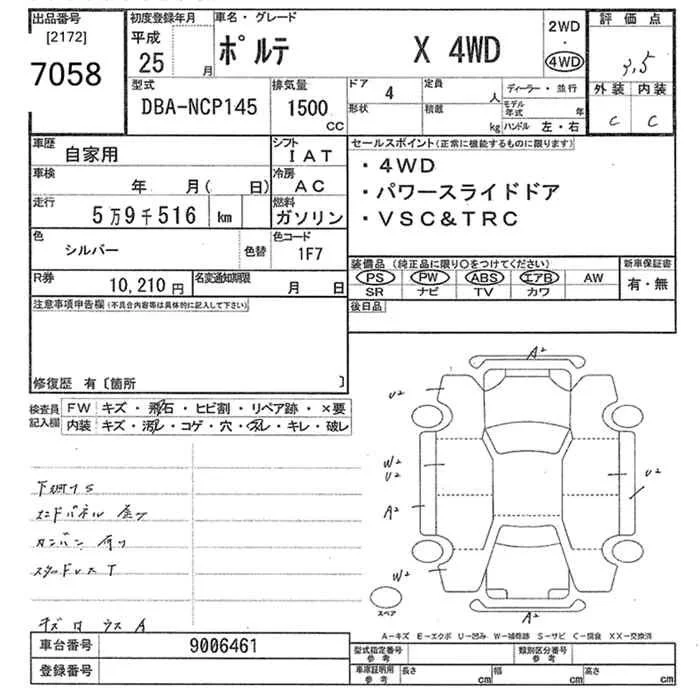 出品番号 初度登録年月 車名・グレード 2WD 評価点
[2172] 平成 ポルテ X 4WD ・ 3,5
7058 25 月 4WD 外装 内装
C C
型式 排気量 ドア 4 定員 人 ディーラー・並行
DBA-NCP145 1500 CC 形状 積載 kg モデル年式 年
ハンドル 左・右
車歴 自家用 シフト IAT セールスポイント(正常に機能するものに限ります)
車検 年 月( 日) 冷房 AC ・4WD
走行 5万9千516 km 燃料 ガソリン ・パワースライドドア
・VSC&TRC
色 シルバー 色替 色コード 1F7
装備品(純正品に限り〇をつけてください) 新車保証書
R券 10,210円 名変通知期限 月 日 PS PW ABS エアB AW 有・無
SR ナビ TV カワ
注意事項申告欄(不具合内容等は具体的に記入して下さい) 後日品
修復歴 有〔箇所 〕
検査員 FW キズ・飛石・ヒビ割・リペア跡・×要
記入欄 内装 キズ・汚レ・コゲ・穴・スレ・キレ・破レ
A2
U2
W2
U2
U2
A2
W2
A2
スペア
下廻りS
エンドパネル
カンバン
スタッドレス T
キズ
A-キズ E-エクボ U-凹み W-補修跡 S-サビ C-腐食 XX-交換済
車台番号 9006461 型式指定番号 参考 類別区分番号 参考
登録番号 車庫証明用 参考 長さ cm 幅 cm 高さ cm